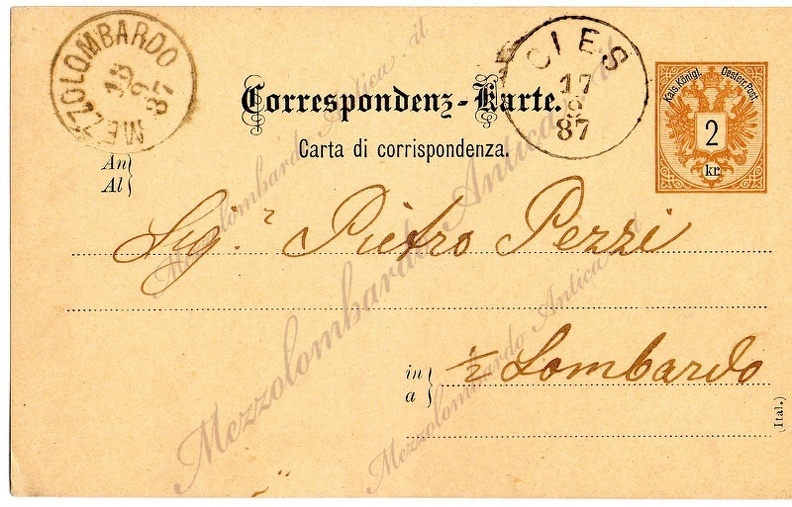 MEZZOLOMBARDO
18
9
87
CLES
17
9
87
Kais. Königl. Oesterr. Post
2
kr.
Correspondenz-Karte.
Carta di corrispondenza.
An
Al
Sig.r Pietro Pezzi
in
a
½ Lombardo
(Ital.)
Mezzolombardo Antica.it
Mezzolombardo Antica.it
Mezzolombardo Antica.it